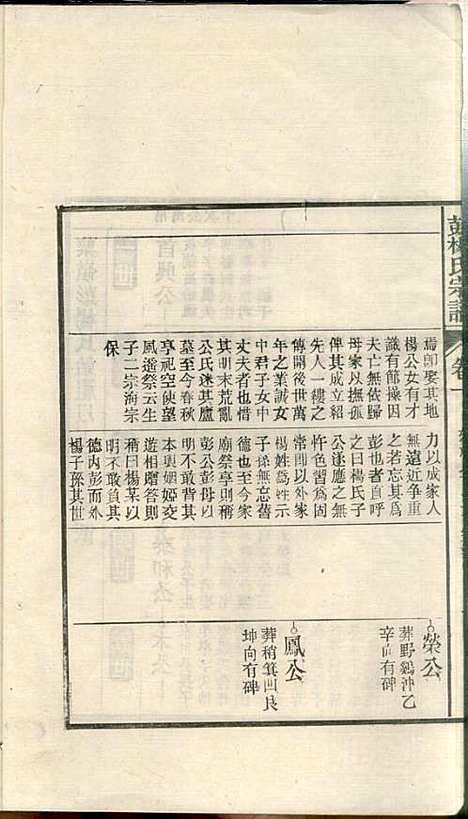 彭楊氏宗譜
卷一
焉卽娶其地
楊公女有才
識有節操因
夫亡無依歸
母家以撫孤
俾其成立紹
先人一縷之
傳開後世萬
年之業誠女
中君子女中
丈夫者也惜
其明末荒亂
公氏迷其廬
墓至今春秋
享祀空使望
風遙祭云生
子二宗洵宗
保
力以成家人
無遠近爭重
之若忘其爲
彭也者自爲
之曰楊氏子
公遂應之無
怍色習爲固
常卽以外家
楊姓爲姓示
子孫無忘舊
德也至今家
廟祭享則稱
彭公彭母以
明不敢背其
本與姻婭交
遊相贈答則
稱曰楊某以
明不敢負其
德內彭而外
楊子孫其世
榮公
葬野鷄沖乙
辛向有碑
鳳公
葬稍箕凹艮
坤向有碑